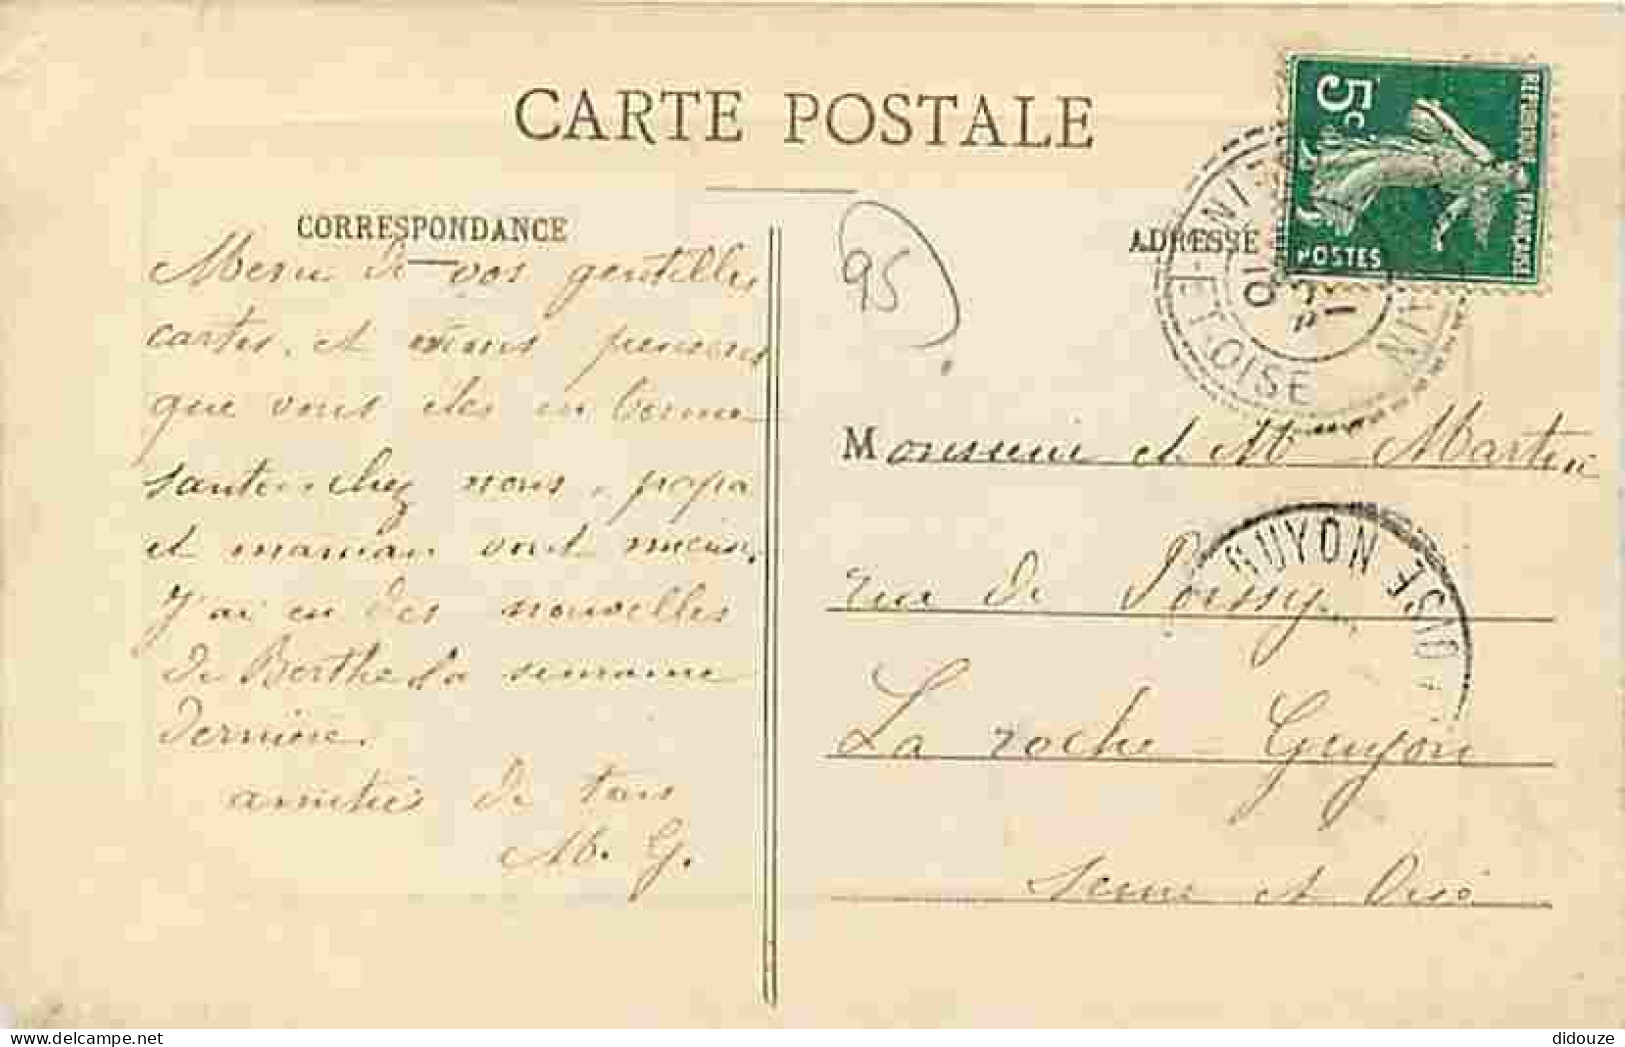 CARTE POSTALE
CORRESPONDANCE
ADRESSE
5c
REPUBLIQUE FRANÇAISE
POSTES
ET-OISE
95
Merci de vos gentilles
cartes, et nous pensons
que vous êtes en bonne
santé chez nous, papa
et maman vont mieux.
J'ai eu des nouvelles
de Berthe la semaine
dernière.
amitiés de tous
M. G.
Monsieur et Mme Martin
rue de Poissy
La roche Guyon
Seine et Oise
GUYON
OISE
didouze